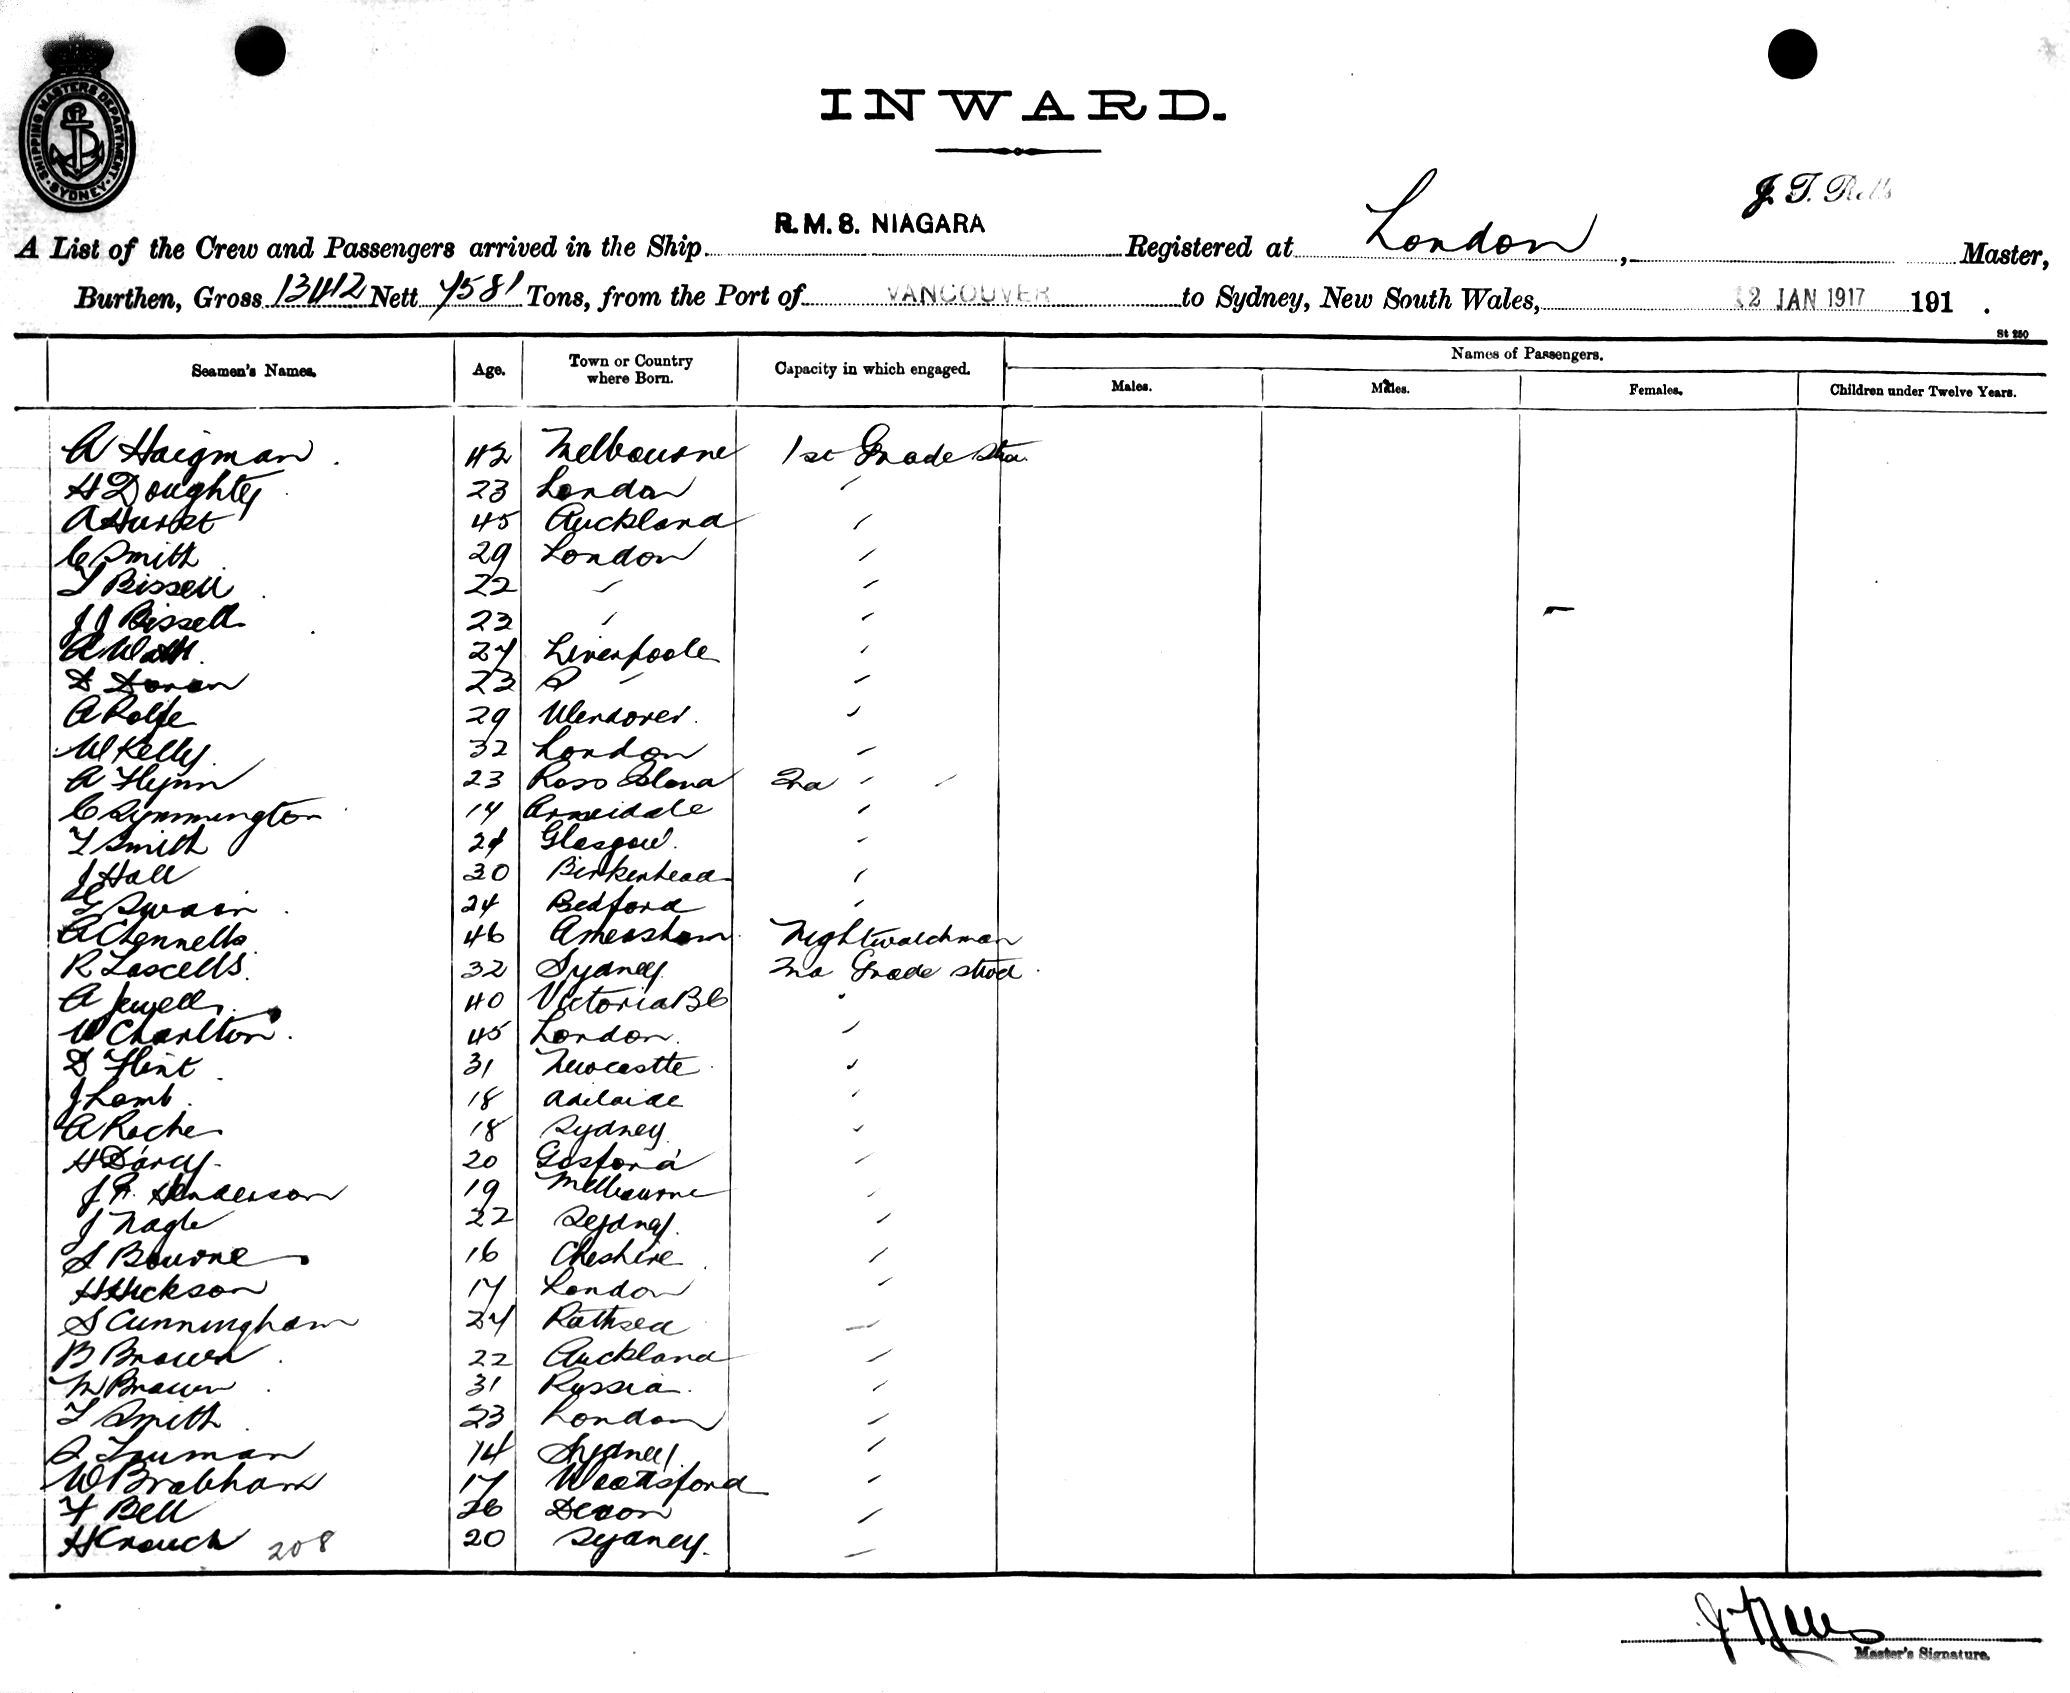 SHIPPING MASTERS DEPARTMENT
SYDNEY
INWARD.
J. T. Rolls
R. M. S. NIAGARA
A List of the Crew and Passengers arrived in the Ship Registered at London, Master,
Burthen, Gross 13412 Nett 7581 Tons, from the Port of VANCOUVER to Sydney, New South Wales, 12 JAN 1917 191 .
St 250
Seamen's Names. Age. Town or Country where Born. Capacity in which engaged. Names of Passengers.
Males. Males. Females. Children under Twelve Years.
A Haigman 42 Melbourne 1st Grade
H Doughty 23 London "
A Hurst 45 Auckland "
C Smith 29 London "
T Bissell 22 " "
J J Bissell 22 " "
A 27 Liverpoole "
D Doran 23 "
A Rolfe 29 "
W Kelly 32 London "
A Flynn 23 Ross Island 2nd " "
C Symmington 17 Armidale "
T Smith 21 Glasgow "
J Hall 30 Birkenhead "
Swain 24 Bedford "
A Chennells 46 Amersham Nightwatchman
R Lascells 32 Sydney 2nd Grade stwd
A Jewell 40 Victoria BC "
W Charlton 45 London "
D Flint 31 Newcastle "
J Lamb 18 Adelaide "
A Roche 18 Sydney "
H Darcy 20 Gosford "
J Henderson 19 Melbourne "
J Nagle 22 Sydney "
S Bourne 16 Cheshire "
H Hickson 17 London "
S Cunningham 27 "
B Brown 22 Auckland "
M Brown 31 Russia "
T Smith 23 London "
Truman 14 Sydney "
W Brabham 17 "
F Bell 26 Devon "
H Crouch 208 20 Sydney "
Master's Signature.